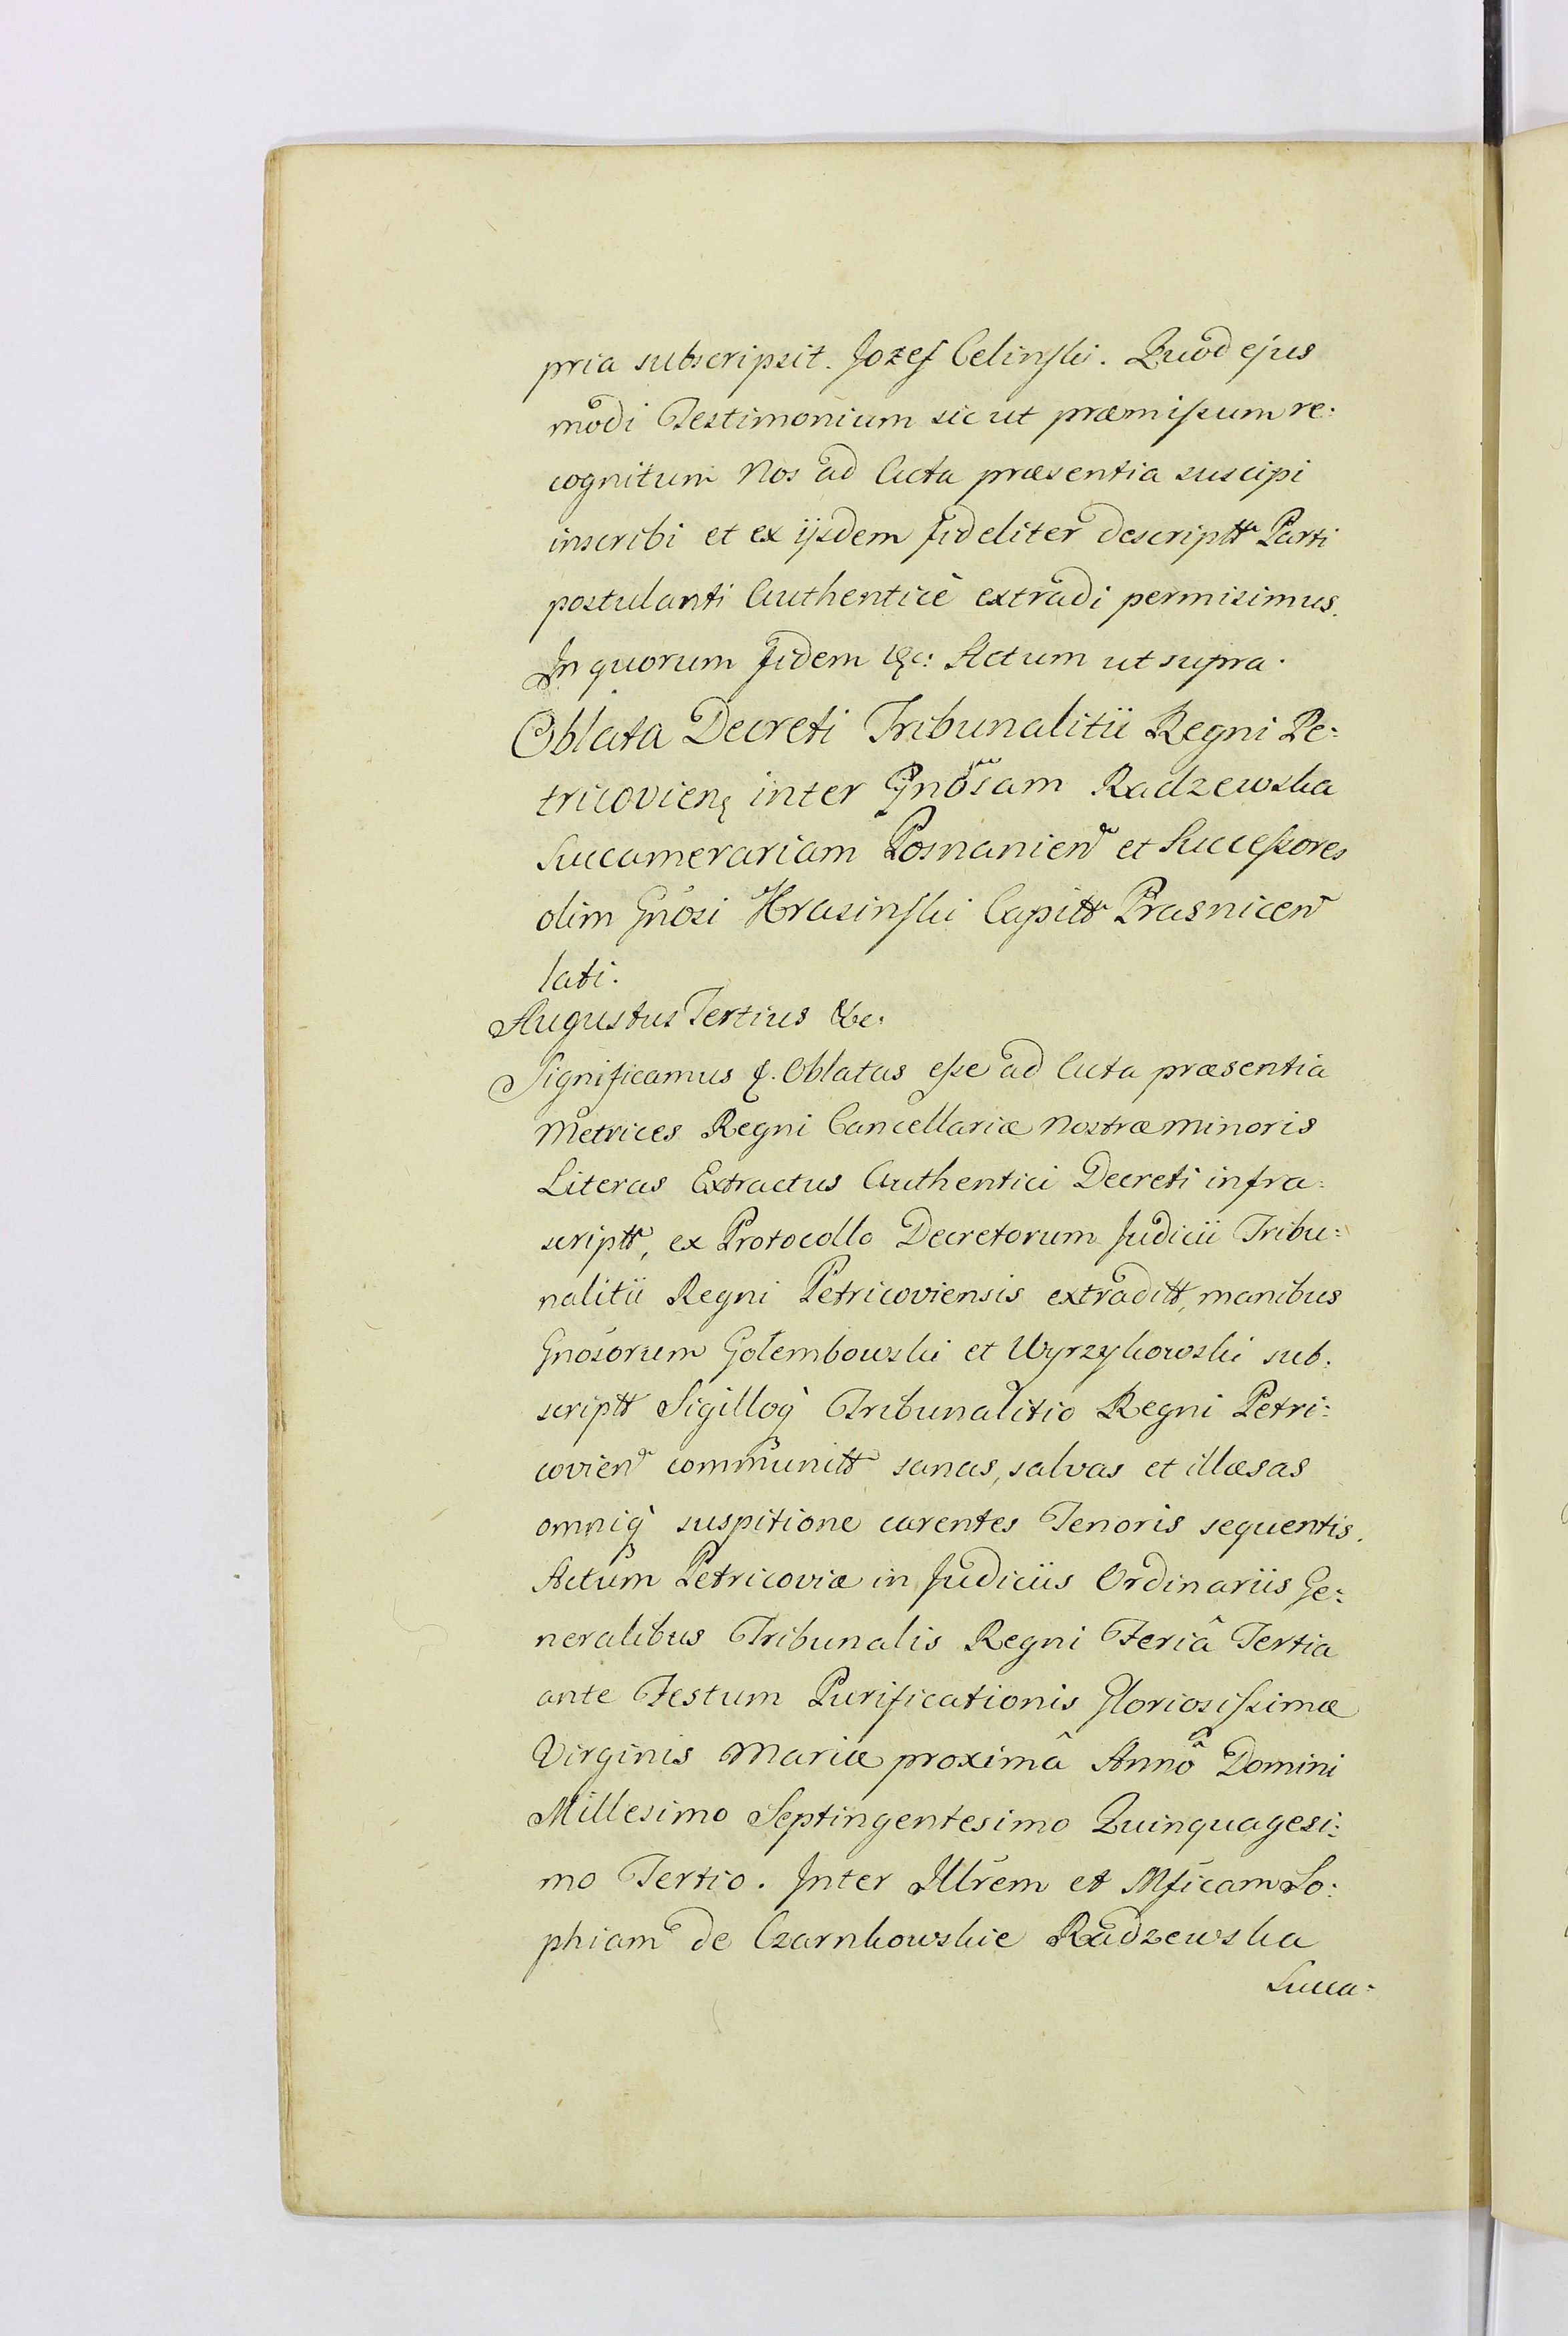 pria subscripsit. Jozef Celinski. Quod ejus
modi Testimonium sic ut præmissum re:
cognitum Nos ad Acta præsentia suscipi
inscribi et ex ijsdem fideliter descriptt Parti
postulanti Authenticè extradi permisimus.
In quorum fidem &c: Actum ut supra.
Oblata Decreti Tribunalitii Regni Pe:
tricovien inter Gnosam Radzewska
Succamerariam Posnanien et Successores
olim Gnosi Krasinski Capitt Prasnicen
lati.
Augustus Tertius &c.
Significamus &. Oblatas esse ad Acta præsentia
Metrices Regni Cancellariæ Nostræ Minoris
Literas Extractus Authentici Decreti infra:
scriptt, ex Protocollo Decretorum Judicii Tribu:
nalitii Regni Petricoviensis extraditt, manibus
Gnosorum Gołembowski et Wyrzykowski sub:
scriptt Sigilloq́ Tribunalitio Regni Petri:
covien communitt sanas, salvas et illæsas
omniq́ suspitione carentes Tenoris sequentis.
Actum Petricoviæ in Judiciis Ordinariis Ge:
neralibus Tribunalis Regni Feriâ Tertia
ante Festum Purificationis Gloriosissimæ
Virginis Mariæ proximâ Annô Domini
Millesimo Septingentesimo Quinquagesi:
mo Tertio. Inter Illrem et Mficam So:
phiam de Czarnkowskie Radzewska
Succa: